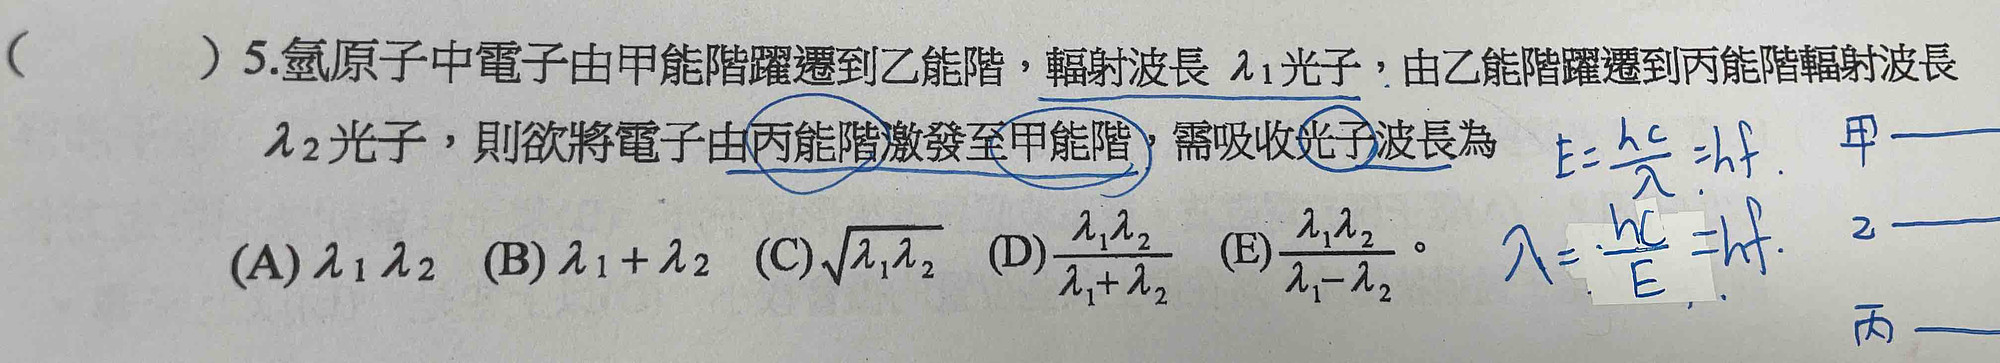 (　　) 5.氫原子中電子由甲能階躍遷到乙能階，輻射波長 λ₁光子，由乙能階躍遷到丙能階輻射波長
λ₂光子，則欲將電子由丙能階激發至甲能階，需吸收光子波長為
(A) λ₁λ₂ (B) λ₁+λ₂ (C) √(λ₁λ₂) (D) λ₁λ₂/(λ₁+λ₂) (E) λ₁λ₂/(λ₁−λ₂)。
E=hc/λ=hf.
λ=hc/E=hf.
甲
乙
丙